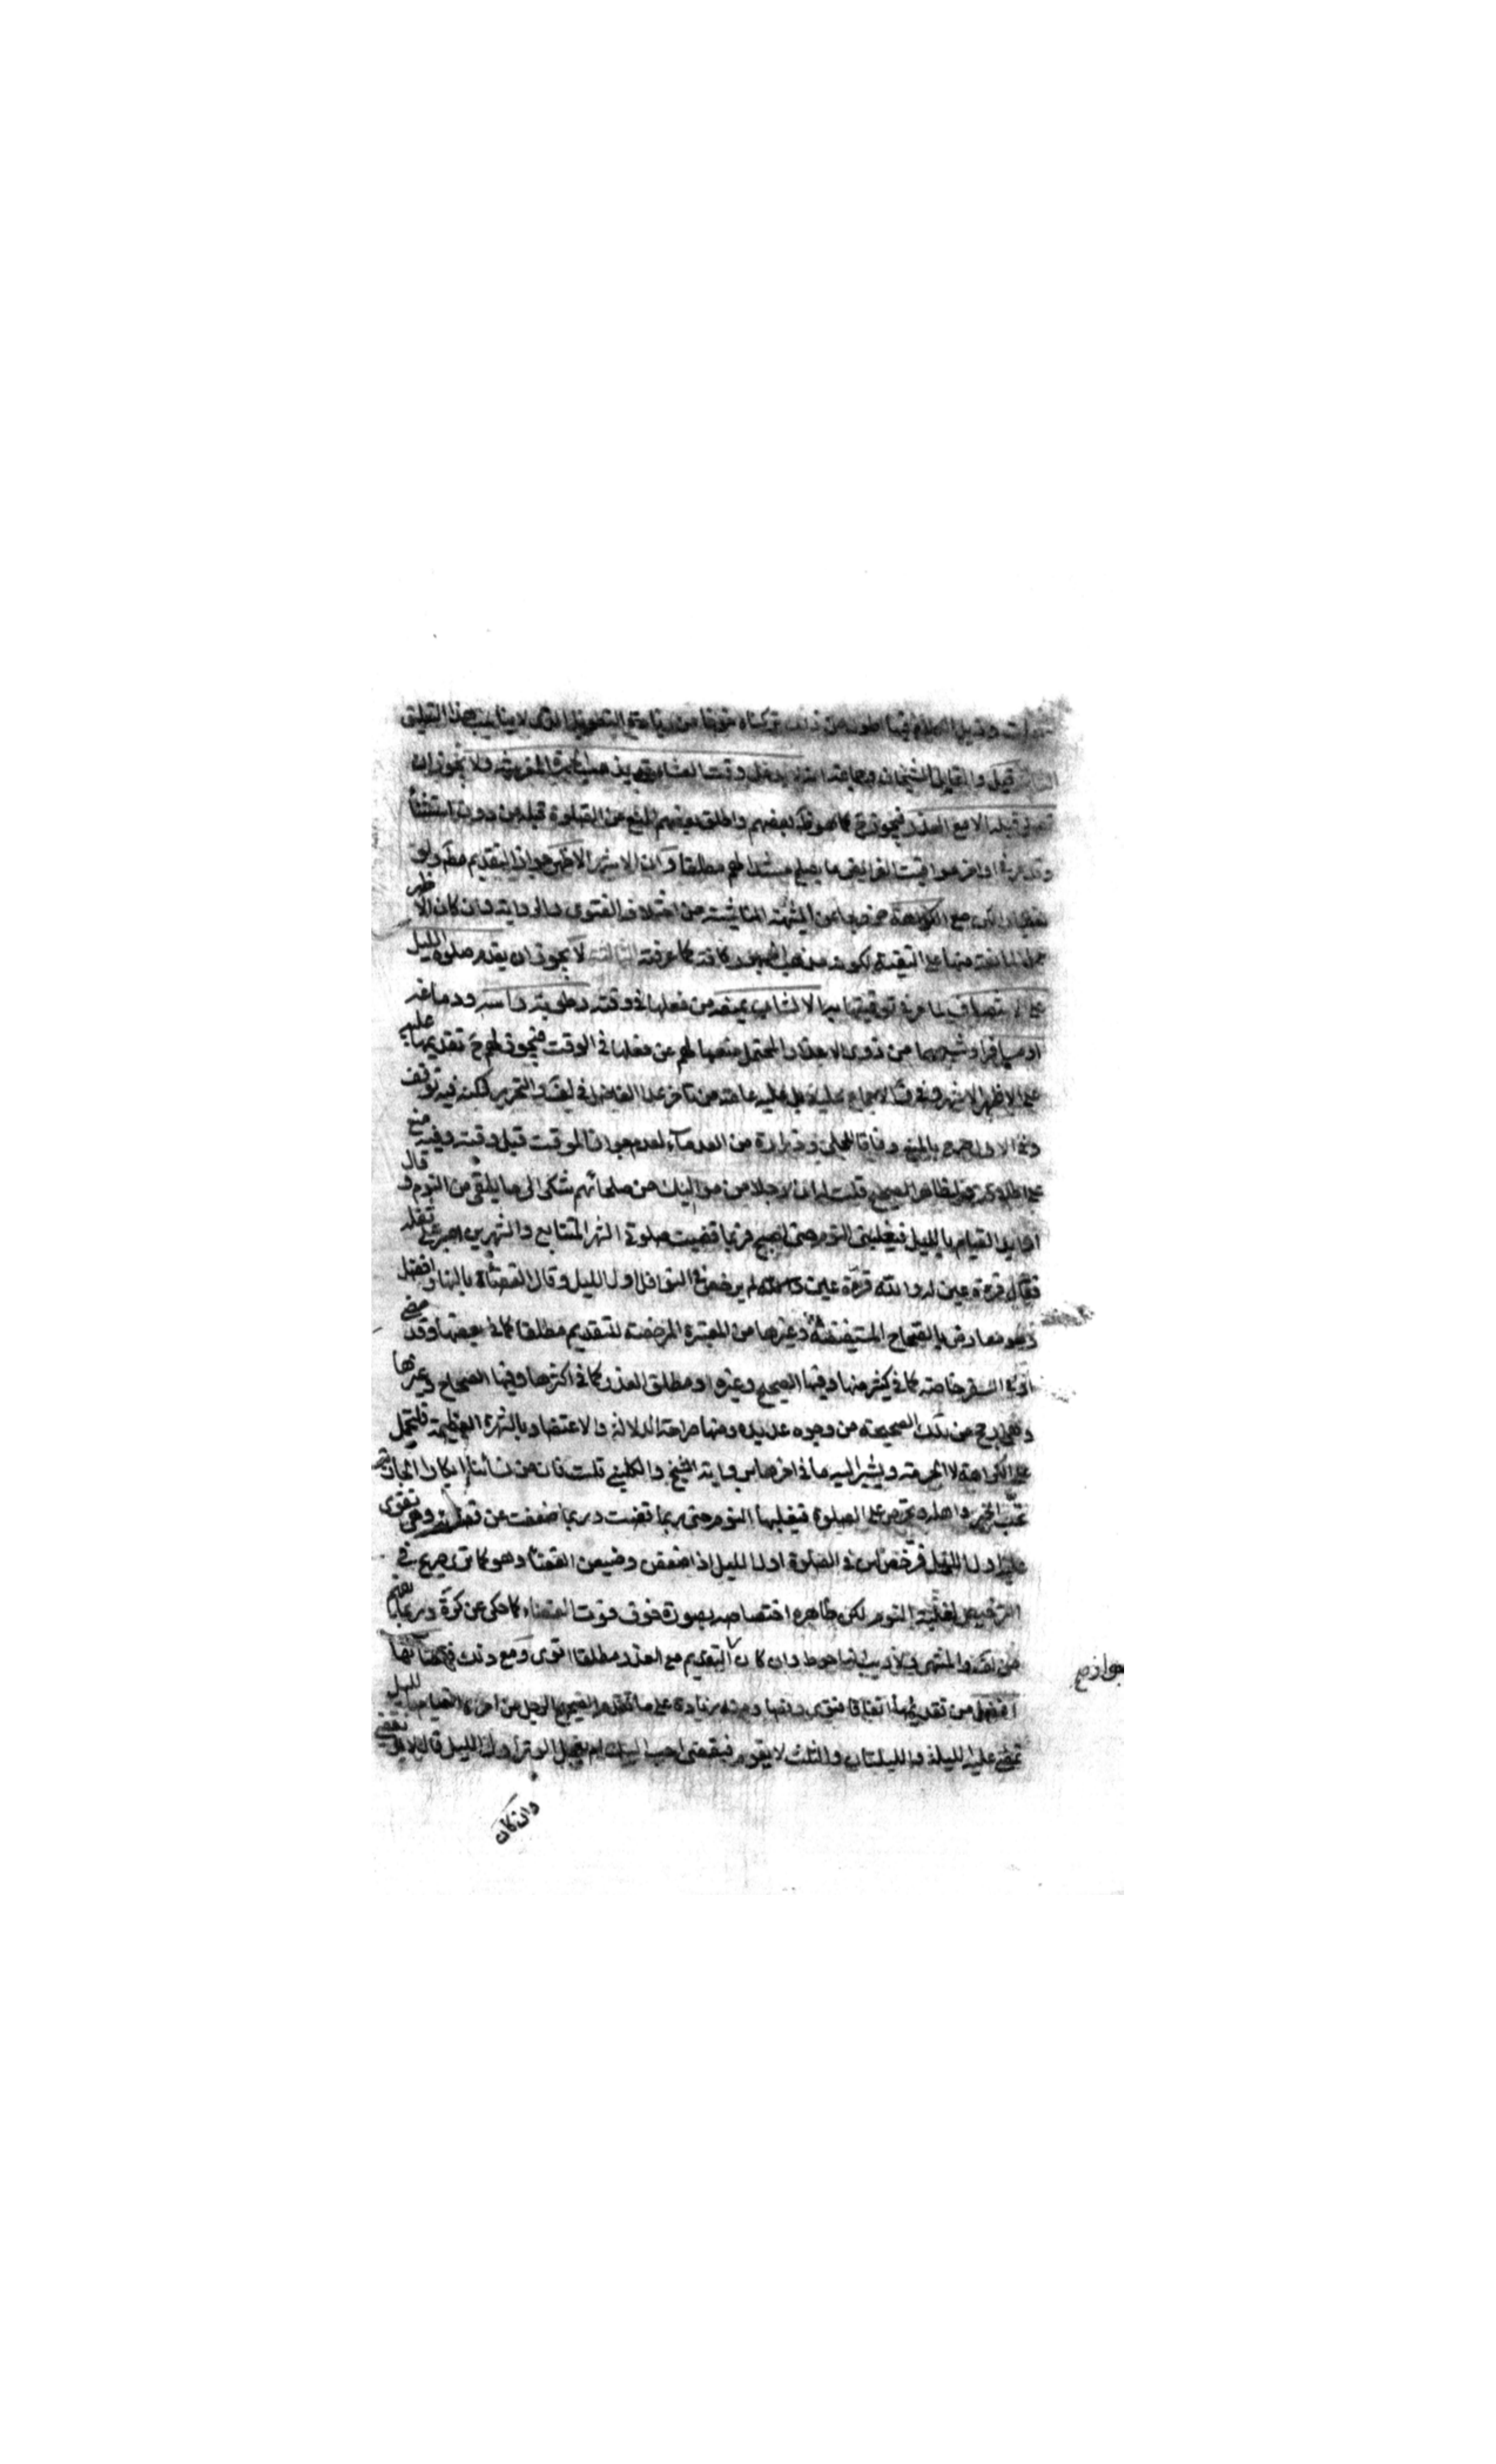 وذيل الكلام فيها طويل من ذلك تركناه خوفا من زيادة التطويل الذي لا يناسب هذا التعليق
قيل والقايل الشيخان وجماعة انه لا يدخل وقت العشاء حتى يذهب الحمرة المغربية ولا يجوز ان
تصلى قبله الا مع العذر فيجوز ح كما هو قول بعضهم واطلق بعضهم المنع عن الصلوة قبله من دون استثناء
وقد مر في اواخر مواقيت الفرايض ما يصلح مستندا لهم مطلقا وان الاشهر الاظهر جواز التقديم مطلقا ولو
اختيارا لكن مع الكراهة خروجا عن الشبهة الناشئة من اختلاف الفتوى والرواية وان كان الاظهر
حمل المانعة منها على التقية لكونه مذهب الجمهور كافة كما عرفته الثالثة لا يجوز ان يقدم صلوة الليل
على الانتصاف لما مر في توقيتها به الا لشاب يمنعه من فعلها في وقته رطوبة راسه ودماغه
او مسافر او شبههما من ذوى الاعذار المحتمل منعها لهم عن فعلها في الوقت فيجوز لهم ح تقديمها عليه
على الاظهر الاشهر وفي ف الاجماع عليه بل عليه عامة من تاخر عدا الفاضل في لف والتحرير لكنه فيه توقف
وفي الاول صرح بالمنع وفاقا للحلي وزرارة من القدماء لعدم جواز الموقت قبل وقته وفيه منع
على اطلاقه ولظاهر الصحيح قلت له ان رجلا من مواليك من صلحائهم شكى الى ما يلقى من النوم وقال
اني اريد القيام بالليل فيغلبني النوم حتى اصبح فربما قضيت صلوة الشهر المتتابع والشهرين اصبر على ثقله
فقال قرة عين له والله قرة عين ولم يرخص في النوافل اول الليل وقال القضاء بالنهار افضل
وهو معارض بالصحاح المستفيضة وغيرها من المعتبرة المرخصة للتقديم مطلقا كما في بعضها وقد مضى
او في السفر خاصة كما في كثير منها وفيها الصحيح وغيره او مطلق العذر كما في اكثرها وفيها الصحاح وغيرها
وهي ارجح من تلك الصحيحة من وجوه عديدة ومنها صراحة الدلالة والاعتضاد بالشهرة العظيمة فلتحمل
على الكراهة لا الحرمة ويشير اليه ما في اخرها برواية الشيخ والكليني قلت فان من نسائنا ابكارا الجارية
تحب الخير واهله وتحرص على الصلوة فيغلبها النوم حتى ربما قضت وربما ضعفت عن قضائه وهي تقوى
عليه اول الليل فرخص لهن في الصلوة اول الليل اذا ضعفن وضيعن القضاء وهو كما ترى صريح في
الترخيص لغلبة النوم لكن ظاهره اختصاصه بصورة خوف فوت القضاء كما حكى عن كرة وربما يفهم
من لف والمنتهى ولا ريب انه احوط وان كان التقديم مع العذر مطلقا اقوى ومع ذلك فقضائها
افضل من تقديمها اتفاقا فتوى ونصا ومنه زيادة على ما تقدم الصحيح الرجل من امره القيام بالليل
تمضى عليه الليلة والليلتان والثلث لا يقوم فيقضى احب اليك ام يعجل الوتر اول الليل قال لا بل يقضى
جواز
وان كان